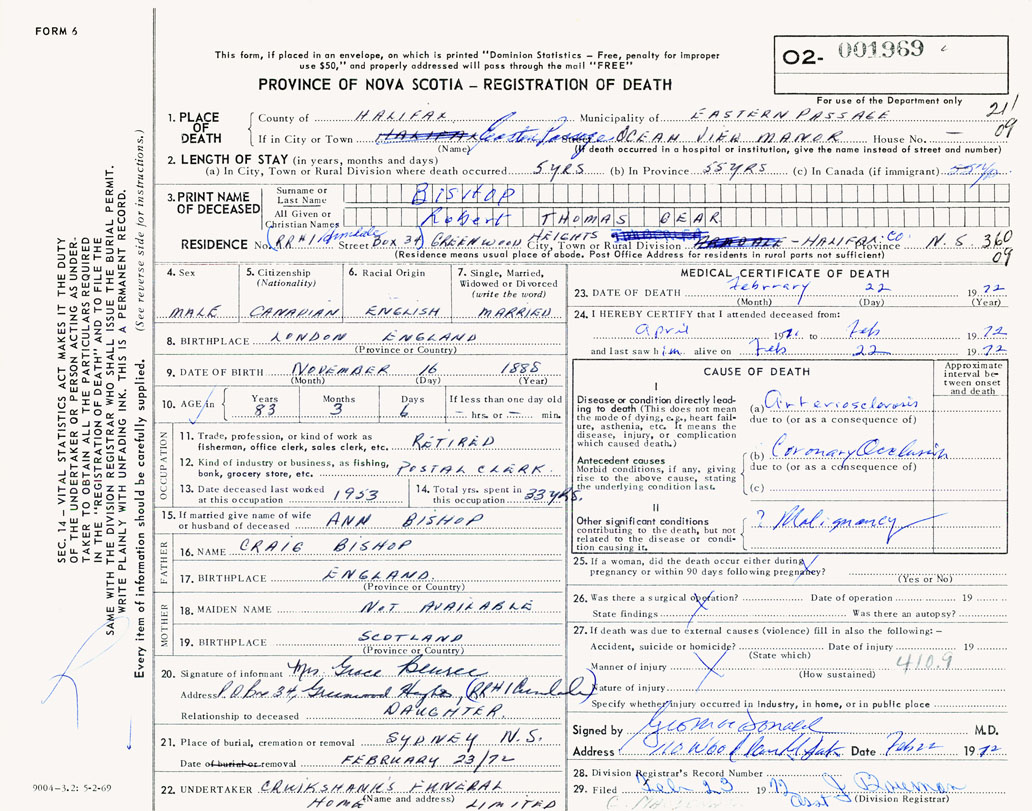 FORM 6
This form, if placed in an envelope, on which is printed "Dominion Statistics – Free, penalty for improper
use $50," and properly addressed will pass through the mail "FREE"
PROVINCE OF NOVA SCOTIA – REGISTRATION OF DEATH
O2- 001969
For use of the Department only
21
09
1. PLACE OF DEATH
County of HALIFAX Municipality of EASTERN PASSAGE
If in City or Town HALIFAX Eastern Passage OCEAN VIEW MANOR House No. —
(Name) (If death occurred in a hospital or institution, give the name instead of street and number)
2. LENGTH OF STAY (in years, months and days)
(a) In City, Town or Rural Division where death occurred 5 YRS (b) In Province 55 YRS (c) In Canada (if immigrant)
3. PRINT NAME OF DECEASED
Surname or Last Name BISHOP
All Given or Christian Names Robert THOMAS GEAR
RESIDENCE No. (RR#1 Armdale Street Box 34) GREENWOOD HEIGHTS City, Town or Rural Division – HALIFAX CO. Province N.S 360
09
(Residence means usual place of abode. Post Office Address for residents in rural parts not sufficient)
4. Sex
MALE
5. Citizenship
(Nationality)
CANADIAN
6. Racial Origin
ENGLISH
7. Single, Married,
Widowed or Divorced
(write the word)
MARRIED
8. BIRTHPLACE LONDON ENGLAND
(Province or Country)
9. DATE OF BIRTH NOVEMBER 16 1888
(Month) (Day) (Year)
10. AGE in Years Months Days If less than one day old
83 3 6 — hrs. or — min.
OCCUPATION
11. Trade, profession, or kind of work as
fisherman, office clerk, sales clerk, etc. RETIRED
12. Kind of industry or business, as fishing,
bank, grocery store, etc. POSTAL CLERK.
13. Date deceased last worked
at this occupation 1953
14. Total yrs. spent in
this occupation 33 YRS.
15. If married give name of wife
or husband of deceased ANN BISHOP
FATHER
16. NAME CRAIG BISHOP
17. BIRTHPLACE ENGLAND.
(Province or Country)
MOTHER
18. MAIDEN NAME NOT AVAILABLE
19. BIRTHPLACE SCOTLAND
(Province or Country)
20. Signature of informant Mrs. Grace
Address P.O. Box 34, Greenwood Hghts, (RR#1 Armdale)
Relationship to deceased DAUGHTER.
21. Place of burial, cremation or removal SYDNEY N.S.
Date of burial or removal FEBRUARY 23/72
22. UNDERTAKER CRUIKSHANK'S FUNERAL
HOME (Name and address) LIMITED
MEDICAL CERTIFICATE OF DEATH
23. DATE OF DEATH February 22 1972
(Month) (Day) (Year)
24. I HEREBY CERTIFY that I attended deceased from:
April 1971 to Feb 1972
and last saw him alive on Feb 22 1972
CAUSE OF DEATH
Approximate
interval be-
tween onset
and death
I
Disease or condition directly lead-
ing to death (This does not mean
the mode of dying, e.g., heart fail-
ure, asthenia, etc. It means the
disease, injury, or complication
which caused death.)
(a) Arteriosclerosis
due to (or as a consequence of)
Antecedent causes
Morbid conditions, if any, giving
rise to the above cause, stating
the underlying condition last.
(b) Coronary Occlusion
due to (or as a consequence of)
(c)
II
Other significant conditions
contributing to the death, but not
related to the disease or condi-
tion causing it.
? Malignancy
25. If a woman, did the death occur either during
pregnancy or within 90 days following pregnancy?
(Yes or No)
26. Was there a surgical operation? Date of operation 19
State findings Was there an autopsy?
27. If death was due to external causes (violence) fill in also the following: –
Accident, suicide or homicide? Date of injury 19
(State which)
410.9
Manner of injury
(How sustained)
Nature of injury
Specify whether injury occurred in industry, in home, or in public place
Signed by Geo MacDonald M.D.
Address Date Feb 22 1972
28. Division Registrar's Record Number
29. Filed Feb 23 1972 J Bowman
Asst (Division Registrar)
SEC. 14 – VITAL STATISTICS ACT MAKES IT THE DUTY
OF THE UNDERTAKER OR PERSON ACTING AS UNDER-
TAKER TO OBTAIN ALL THE PARTICULARS REQUIRED
IN THE "REGISTRATION OF DEATH" AND TO FILE THE
SAME WITH THE DIVISION REGISTRAR WHO SHALL ISSUE THE BURIAL PERMIT.
WRITE PLAINLY WITH UNFADING INK. THIS IS A PERMANENT RECORD.
Every item of information should be carefully supplied. (See reverse side for instructions.)
9004-3.2: 5-2-69